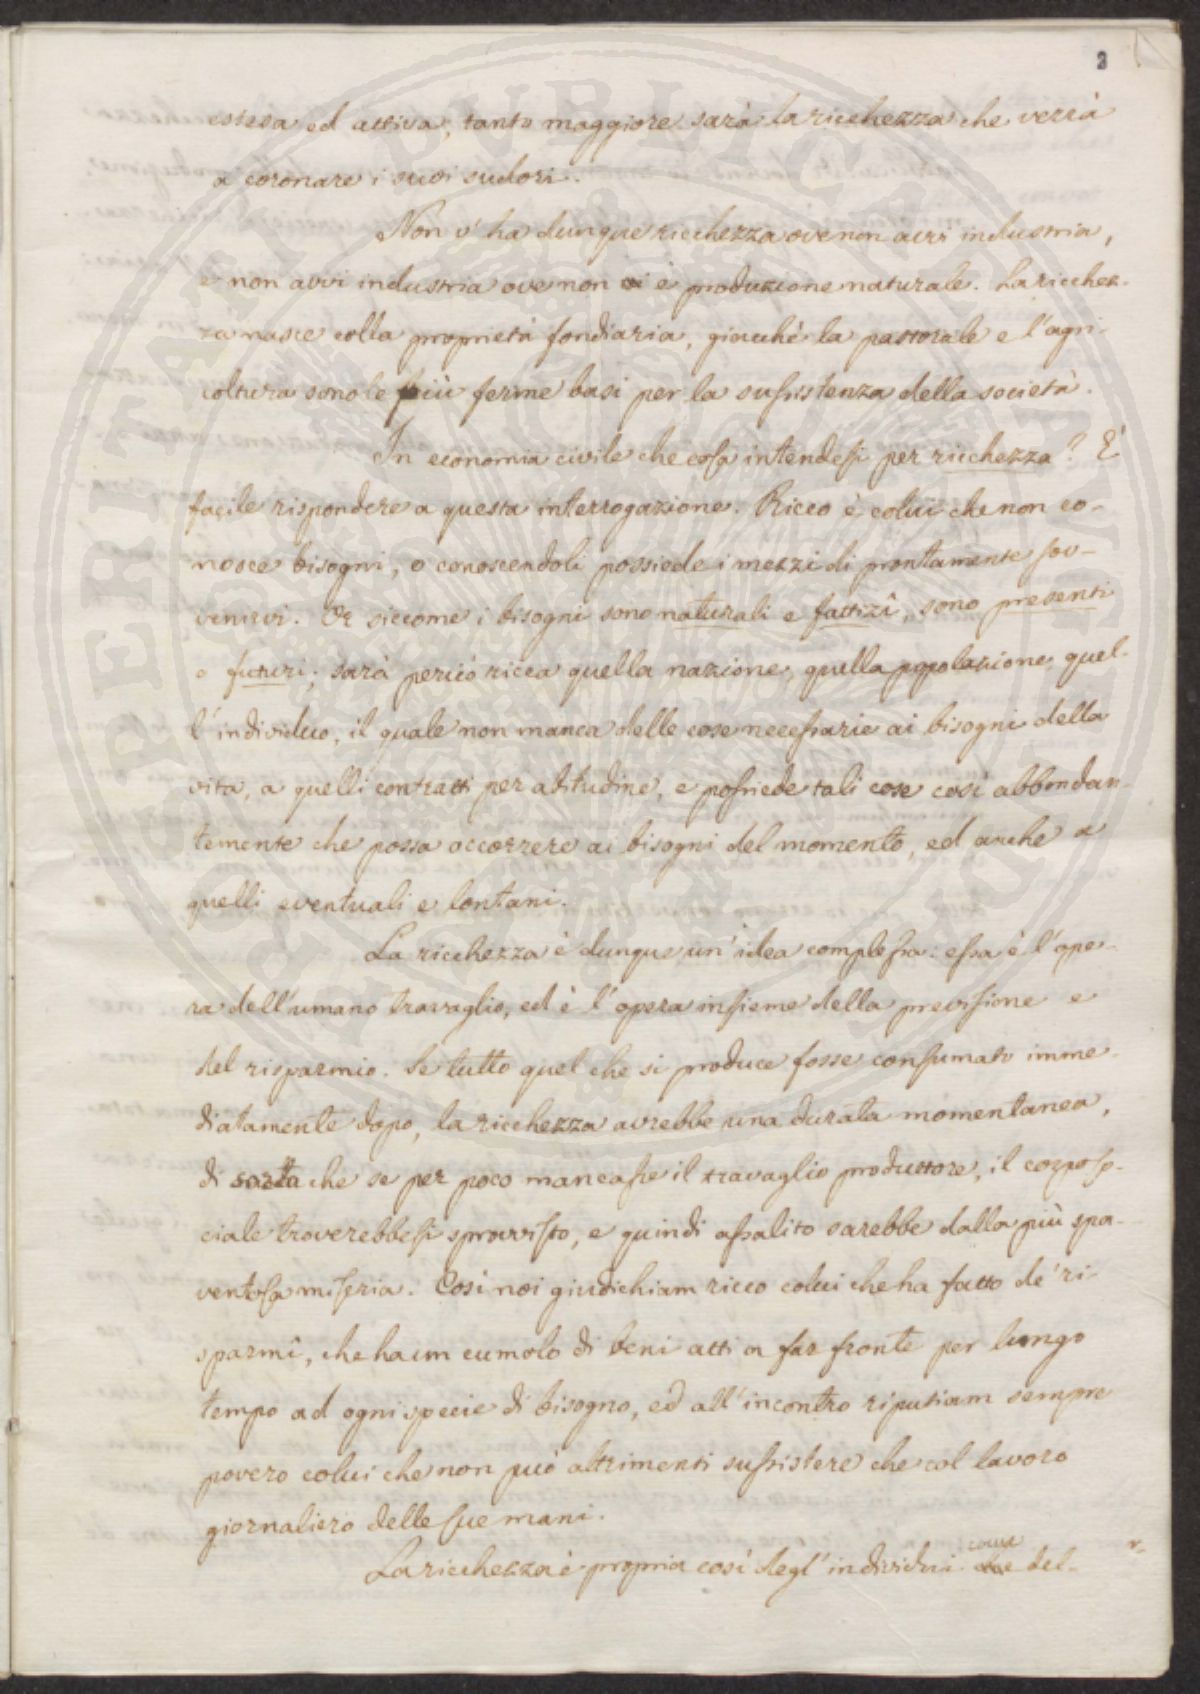 3
estesa ed attiva, tanto maggiore sarà la ricchezza che verrà
a coronare i suoi sudori.
Non v'ha dunque ricchezza ove non avvi industria,
e non avvi industria ove non vi è produzione naturale. La ricchez-
za nasce colla proprietà fondiaria, giacchè la pastorale e l'agri-
coltura sono le più ferme basi per la sussistenza della società.
In economia civile che cosa intendesi per ricchezza? È
facile rispondere a questa interrogazione. Ricco è colui che non co-
nosce bisogni, o conoscendoli possiede i mezzi di prontamente sov-
venirvi. Or siccome i bisogni sono naturali e fattizî, sono presenti
o futuri; sarà perciò ricca quella nazione, quella popolazione, quel-
l'individuo, il quale non manca delle cose necessarie ai bisogni della
vita, a quelli contratti per abitudine, e possiede tali cose così abbondan-
temente che possa occorrere ai bisogni del momento, ed anche a
quelli eventuali e lontani.
La ricchezza è dunque un'idea complessa: essa è l'ope-
ra dell'umano travaglio, ed è l'opera insieme della previsione e
del risparmio. Se tutto quel che si produce fosse consumato imme-
diatamente dopo, la ricchezza avrebbe una durata momentanea,
di sorta che se per poco mancasse il travaglio produttore, il corpo so-
ciale troverebbesi sprovvisto, e quindi assalito sarebbe dalla più spa-
ventosa miseria. Così noi giudichiam ricco colui che ha fatto de' ri-
sparmî, che ha un cumolo di beni atti a far fronte per lungo
tempo ad ogni specie di bisogno, ed all'incontro riputiam sempre
povero colui che non può altrimenti sussistere che col lavoro
giornaliero delle sue mani.
come
La ricchezza è propria così degl'individui che del-
PUBLICAE